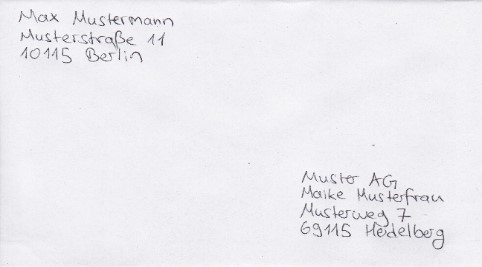 Max Mustermann
Musterstraße 11
10115 Berlin
Muster AG
Maike Musterfrau
Musterweg 7
69115 Heidelberg